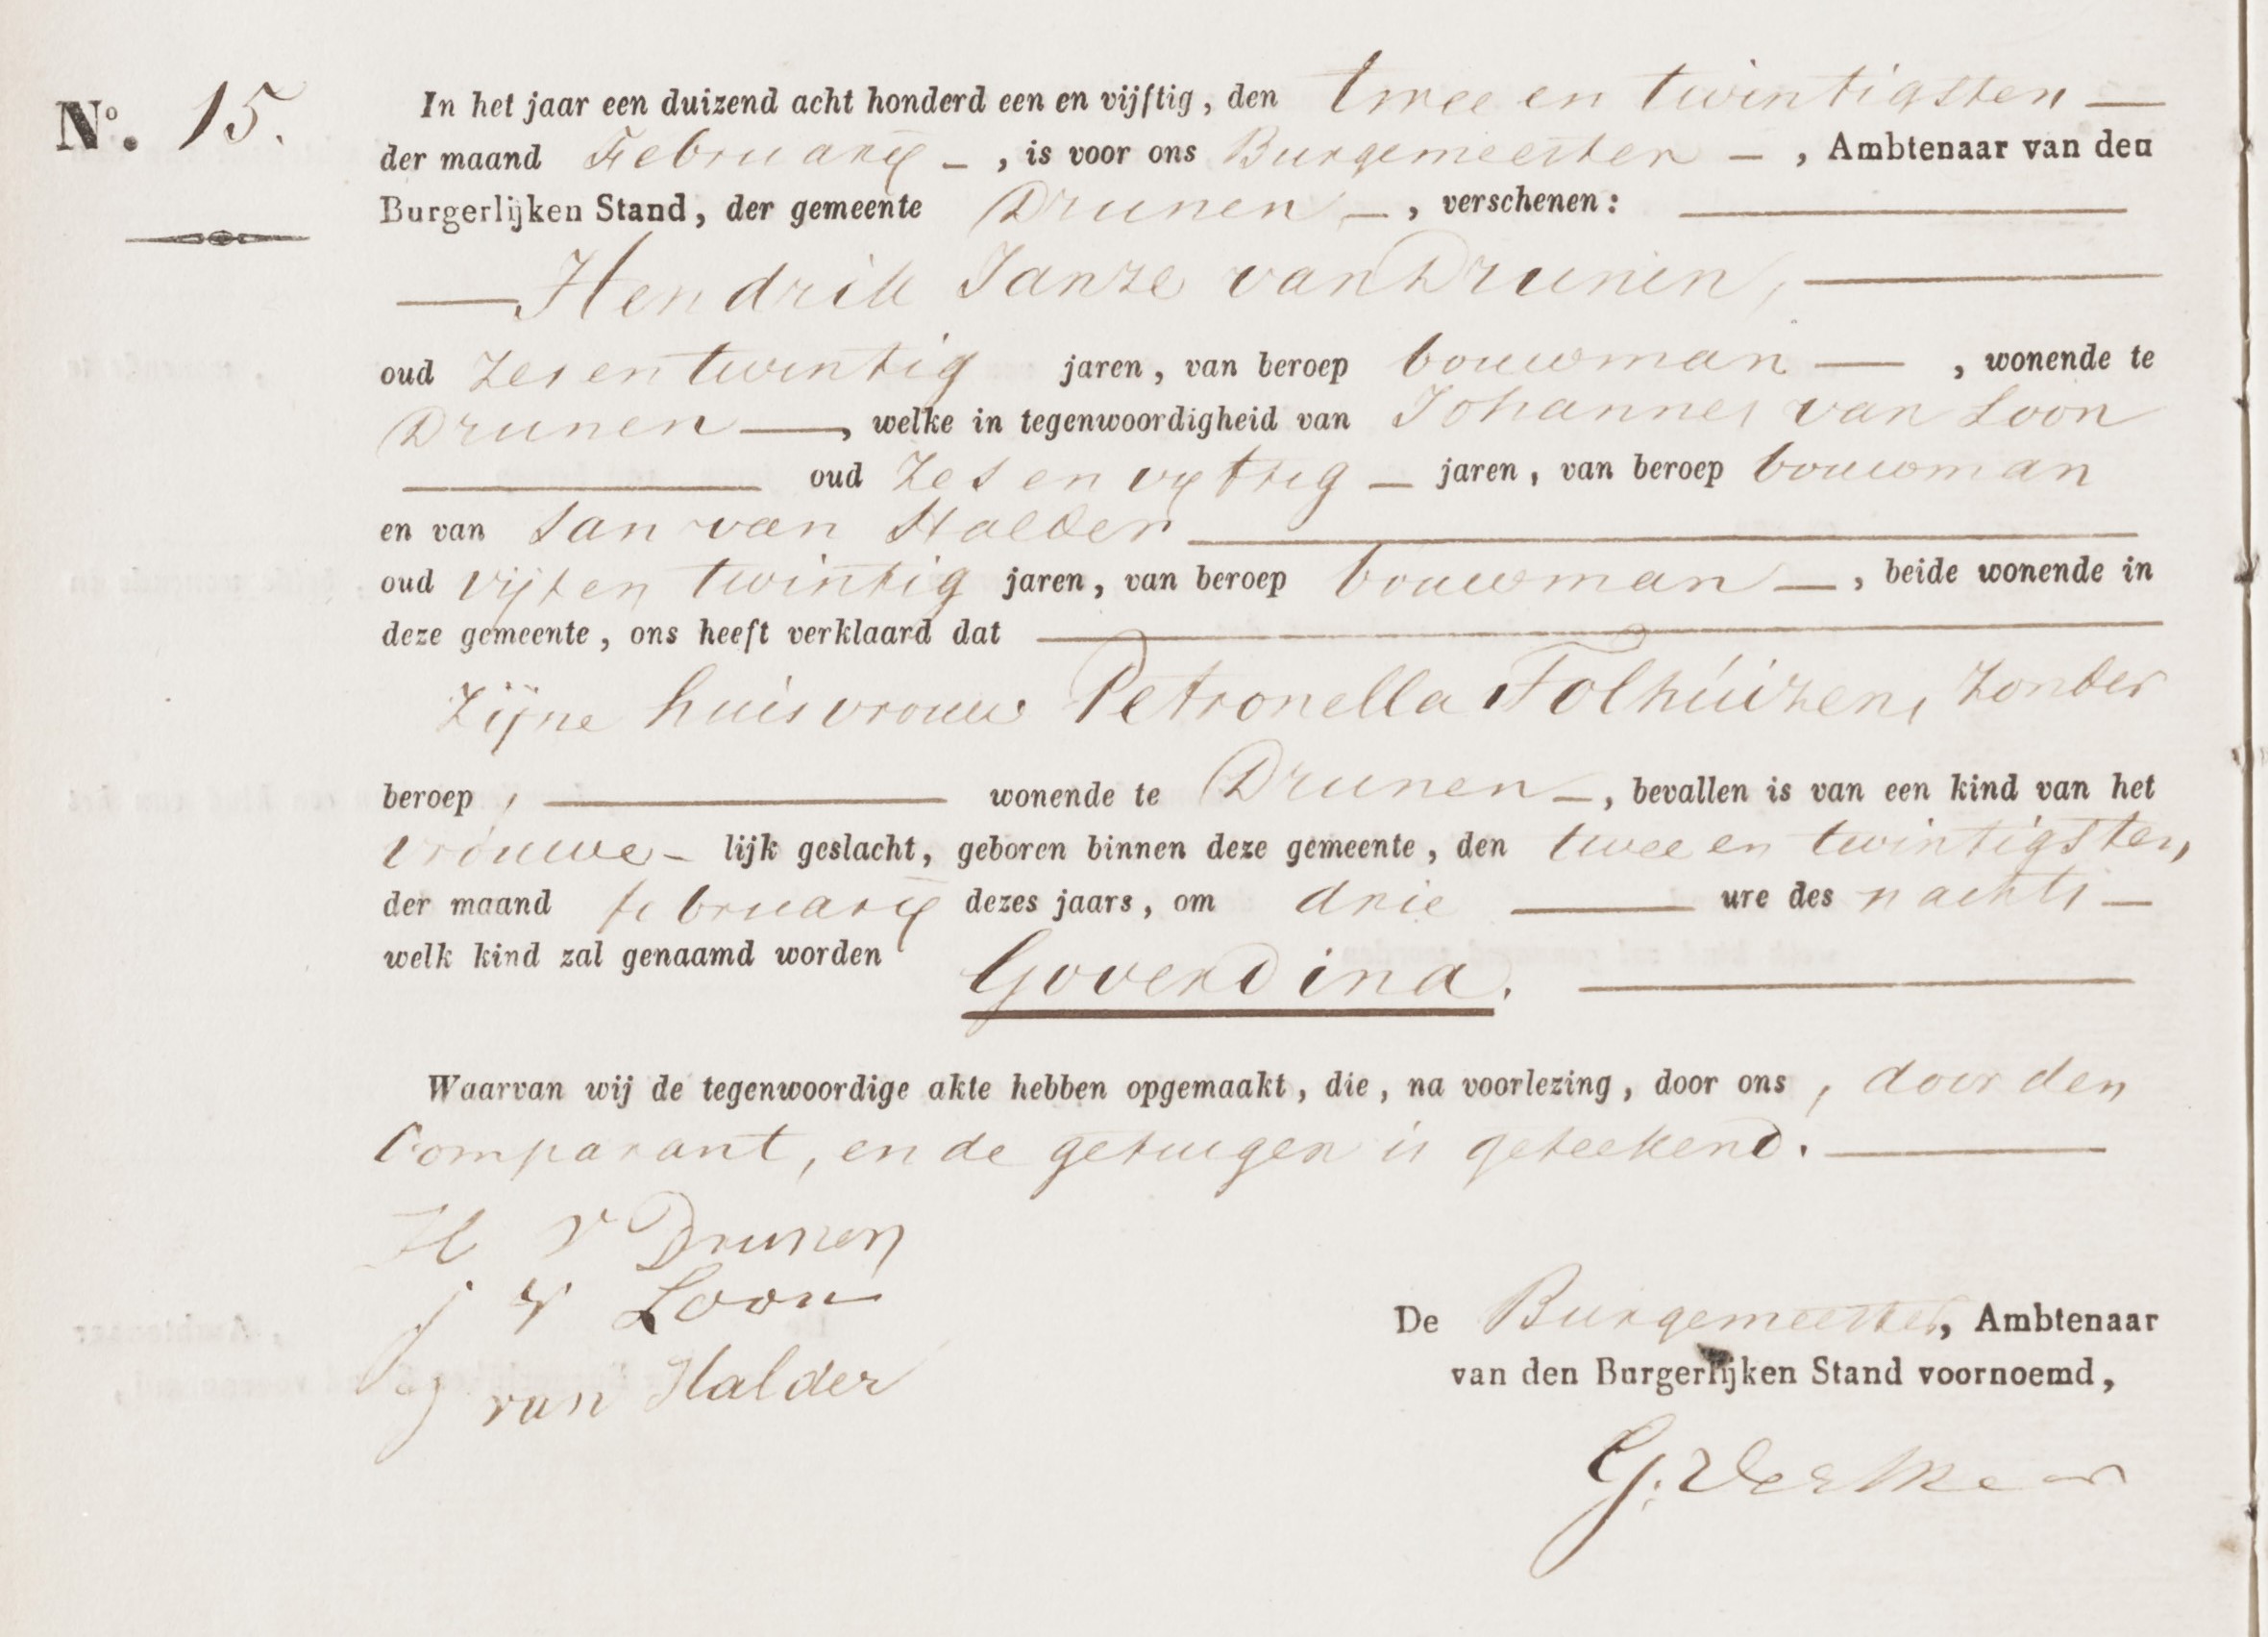 No. 15.
In het jaar een duizend acht honderd een en vijftig, den twee en twintigsten
der maand Februarij, is voor ons Burgemeester, Ambtenaar van den
Burgerlijken Stand, der gemeente Drunen, verschenen:
Hendrik Janze van Drunen,
oud zes en twintig jaren, van beroep bouwman, wonende te
Drunen, welke in tegenwoordigheid van Johannes van Loon
oud zes en vijftig jaren, van beroep bouwman
en van Jan van Halder
oud vijf en twintig jaren, van beroep bouwman, beide wonende in
deze gemeente, ons heeft verklaard dat
zijne huisvrouw Petronella Folhuizen, zonder
beroep, wonende te Drunen, bevallen is van een kind van het
vrouwe- lijk geslacht, geboren binnen deze gemeente, den twee en twintigsten,
der maand februarij dezes jaars, om drie ure des nachts
welk kind zal genaamd worden Goverdina.
Waarvan wij de tegenwoordige akte hebben opgemaakt, die, na voorlezing, door ons, door den
Comparant, en de getuigen is geteekend.
H v Drunen
j v Loon
J van Halder
De Burgemeester, Ambtenaar
van den Burgerlijken Stand voornoemd,
G.